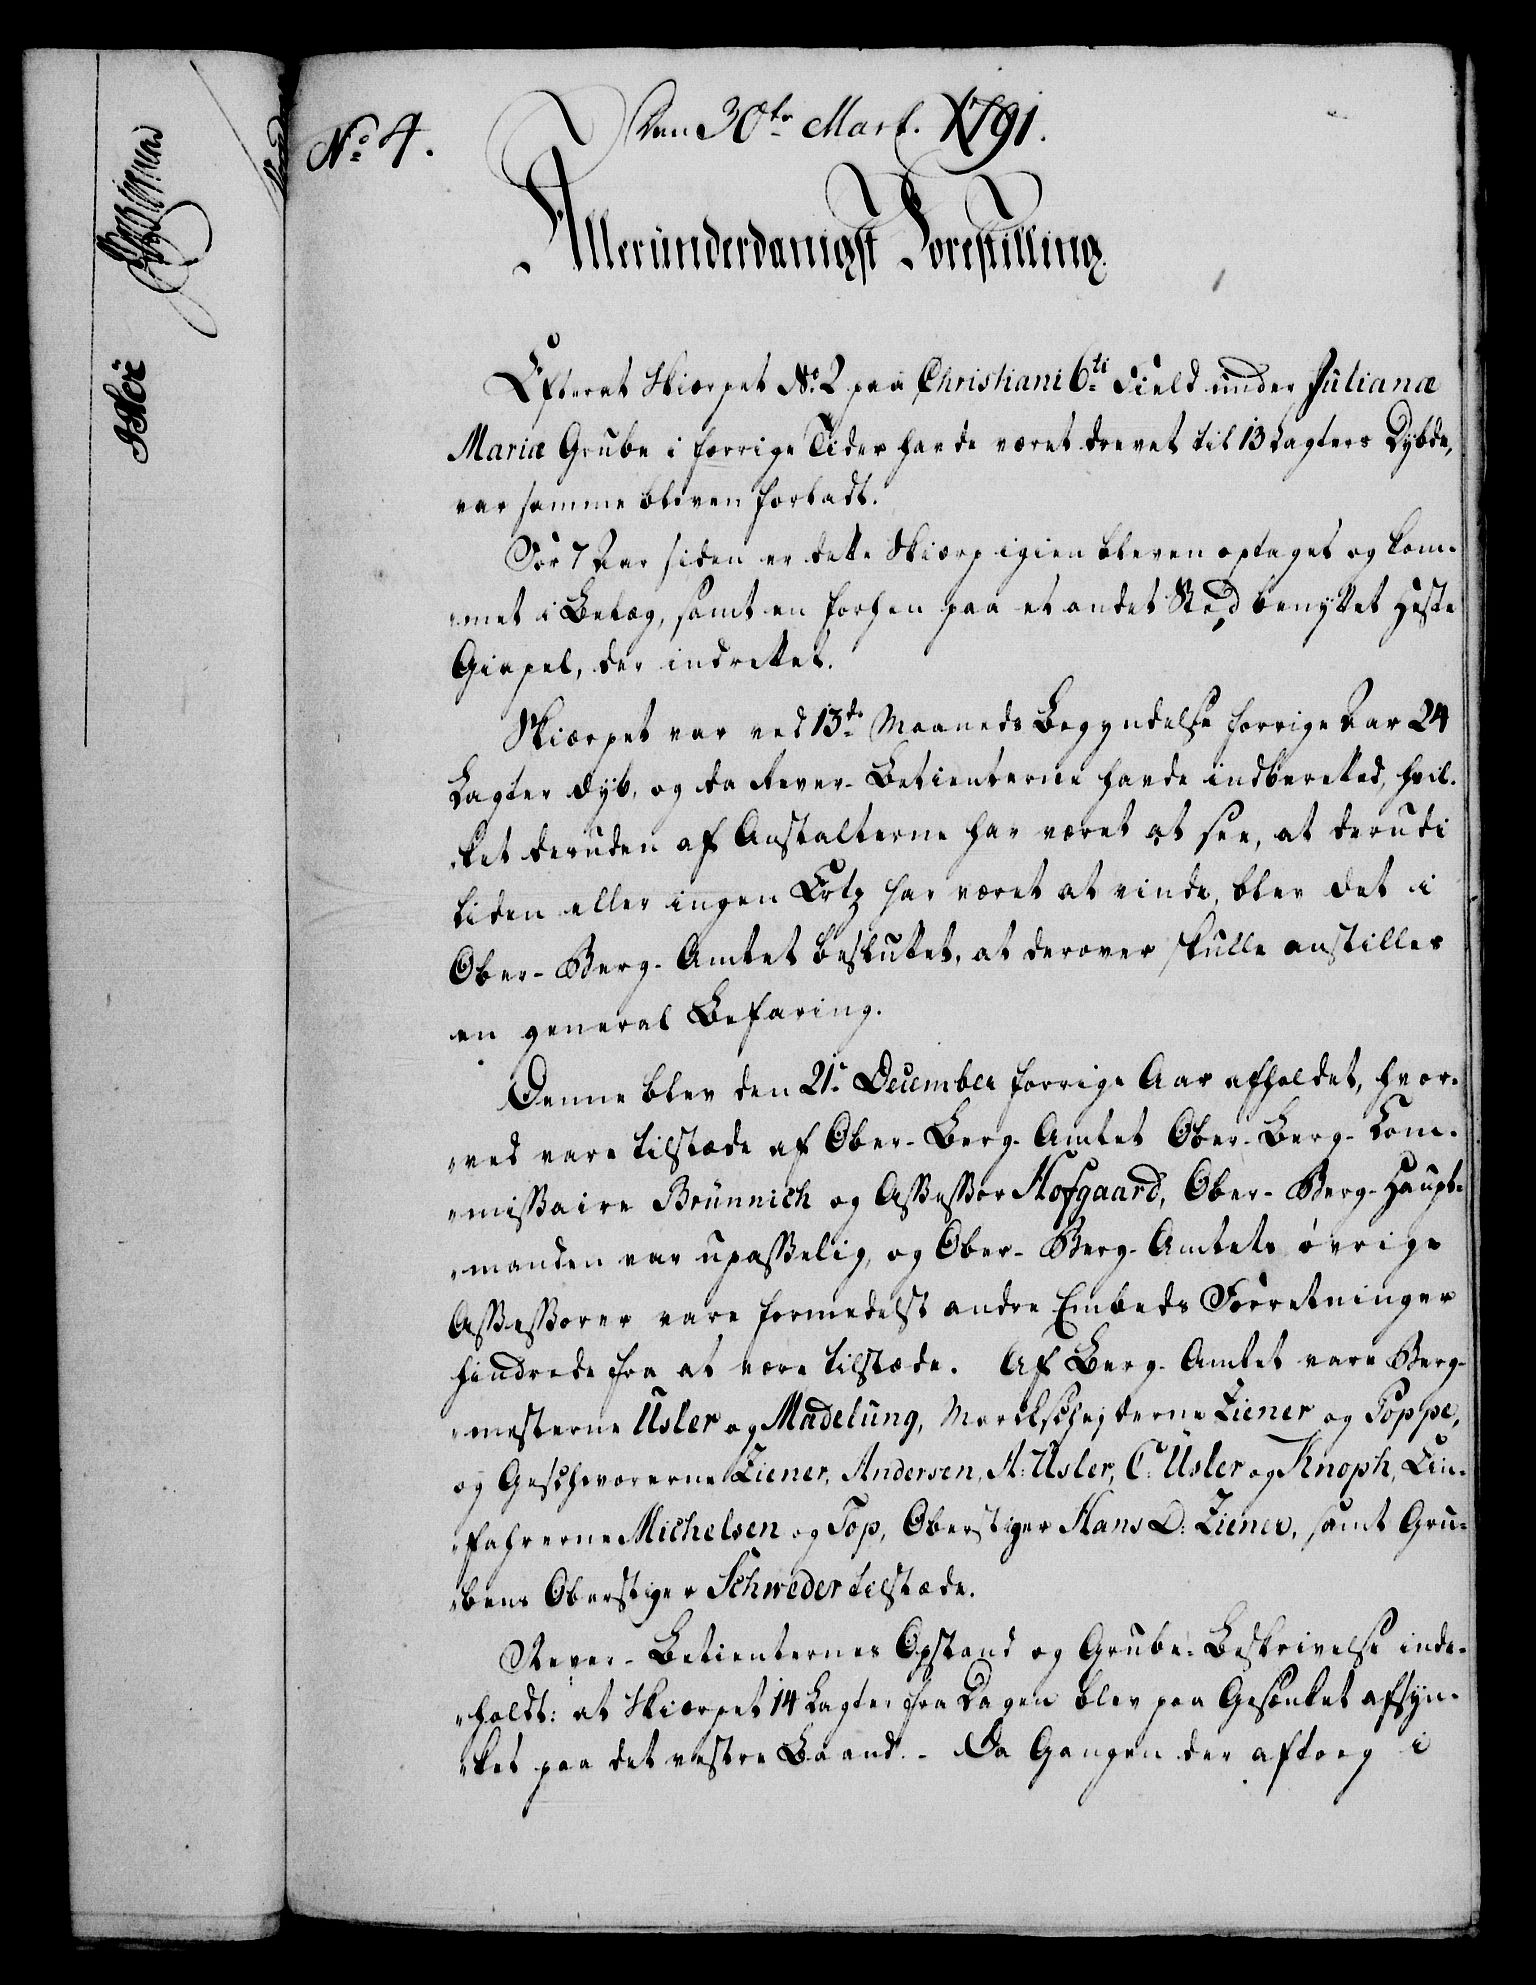 No 4.
Den 30te Mart. 1791.
Allerunderdanigst Forestilling.
Efterat Skiærpet No 2 paa Christiani 6ti Field under Julianæ
Mariæ Grube i forrige Tider havde været drevet til 13 Lagters Dybde,
var samme bleven forladt.
For 7 Aar siden er dette Skiærp igien bleven optaget og kom-
met i Belæg, samt en forhen paa et andet Sted benyttet Heste
Giepel, der indrettet.
Skiærpet var ved 13de Maaneds Begyndelse forrige Aar 24
Lagter dyb, og da Rever-Betienterne havde indberettet, hvil-
ket desuden af Anstalterne har været at see, at derudi
liden eller ingen Ertz har været at vinde, blev det i
Ober-Berg-Amtet besluttet, at derover skulle anstilles
en general Befaring.
Denne blev den 21de December forrige Aar afholdet, hvor-
ved vare tilstæde af Ober-Berg-Amtet Ober-Berg-Com-
missaire Brünnich og Assessor Hofgaard, Ober-Berg-Haupt-
manden var upasselig, og Ober-Berg-Amtets øvrige
Assessorer vare formedelst andre Embeds Forretninger
hindrede fra at være tilstæde. Af Berg-Amtet vare Berg-
mesterne Usler og Madelung, Markschejderne Ziener og Poppe,
og Geschworerne Ziener, Andersen, A: Usler, C: Usler og Knoph, Ein-
fahrerne Michelsen og Top, Oberstiger Hans D: Ziener, samt Gru-
bens Oberstiger Schweder tilstæde.
Rever-Betienternes Opstand og Grube-Beskrivelse inde-
holdt: at Skiærpet 14 Lagter fra Dagen blev paa Gesænket afsyn-
ket paa det vestre Baand. - Da Gangen der aftog i